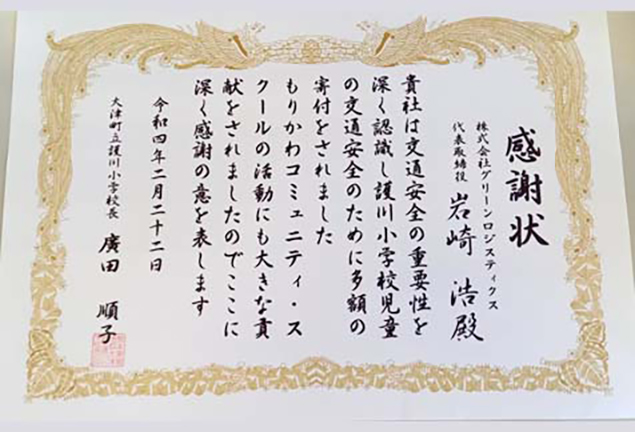 感謝状
株式会社グリーンロジスティクス
代表取締役 岩崎 浩殿
貴社は交通安全の重要性を
深く認識し護川小学校児童
の交通安全のために多額の
寄付をされました
もりかわコミュニティ・ス
クールの活動にも大きな貢
献をされましたのでここに
深く感謝の意を表します
令和四年二月二十二日
大津町立護川小学校長 廣田 順子